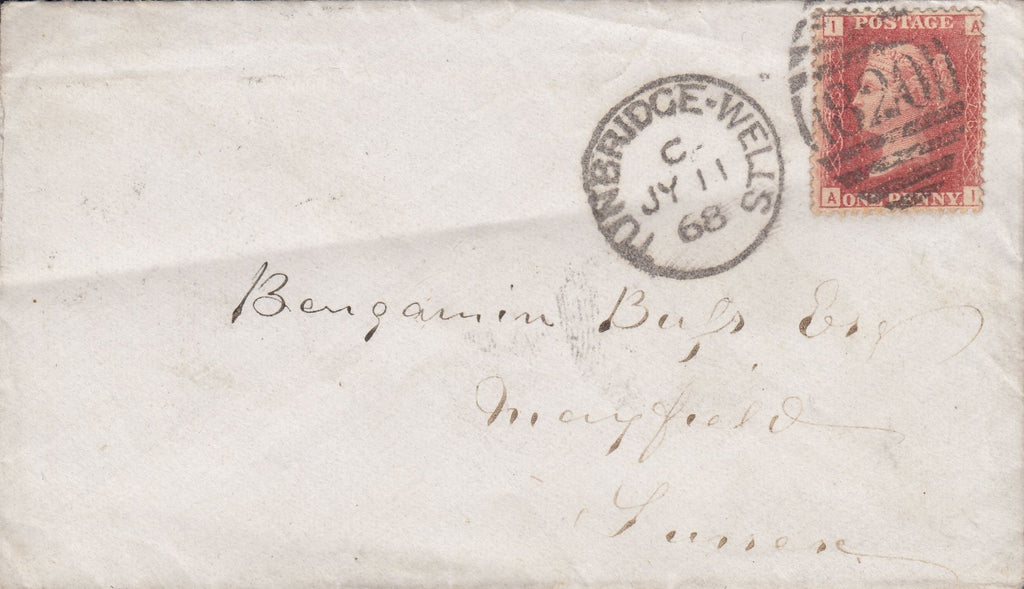 I POSTAGE A
820
A ONE PENNY I
TUNBRIDGE-WELLS
C
JY 11
68
Bengamin Esq
Mayfield
Sussex